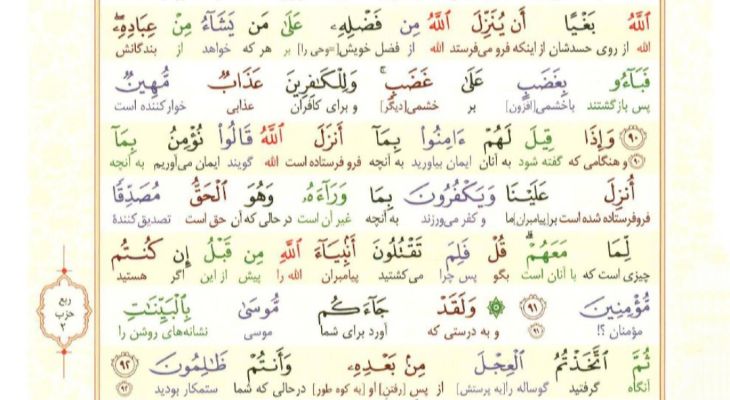 ٱللَّهُ بَغْيًا أَن يُنَزِّلَ ٱللَّهُ مِن فَضْلِهِۦ عَلَىٰ مَن يَشَآءُ مِنْ عِبَادِهِۦۖ
الله از روی حسدشان از اینکه فرو می‌فرستد الله از فضل خویش[=وحی را] بر هر که خواهد از بندگانش
فَبَآءُو بِغَضَبٍ عَلَىٰ غَضَبٍۚ وَلِلْكَٰفِرِينَ عَذَابٌ مُّهِينٌ
پس بازگشتند باخشمی[افزون] بر خشمی[دیگر] و برای کافران عذابی خوارکننده است
﴿٩٠﴾ وَإِذَا قِيلَ لَهُمْ ءَامِنُوا۟ بِمَآ أَنزَلَ ٱللَّهُ قَالُوا۟ نُؤْمِنُ بِمَآ
﴿٩٠﴾ و هنگامی که گفته شود به آنان ایمان بیاورید به آنچه فرو فرستاده است الله گویند ایمان می‌آوریم به آنچه
أُنزِلَ عَلَيْنَا وَيَكْفُرُونَ بِمَا وَرَآءَهُۥ وَهُوَ ٱلْحَقُّ مُصَدِّقًا
فروفرستاده شده است بر[پیامبران]ما و کفر می‌ورزند به آنچه غیر آن است در حالی که آن حق است تصدیق‌کنندهٔ
لِّمَا مَعَهُمْۗ قُلْ فَلِمَ تَقْتُلُونَ أَنۢبِيَآءَ ٱللَّهِ مِن قَبْلُ إِن كُنتُم
چیزی است که با آنان است بگو پس چرا می‌کشتید پیامبران الله را پیش از این اگر هستید
ربع
حزب
٢
مُّؤْمِنِينَ ﴿٩١﴾ ۞ وَلَقَدْ جَآءَكُم مُّوسَىٰ بِٱلْبَيِّنَٰتِ
مؤمنان ؟! ﴿٩١﴾ و به درستی که آورد برای شما موسی نشانه‌های روشن را
ثُمَّ ٱتَّخَذْتُمُ ٱلْعِجْلَ مِنۢ بَعْدِهِۦ وَأَنتُمْ ظَٰلِمُونَ ﴿٩٢﴾
آنگاه گرفتید گوساله را[به پرستش] از پس [رفتن] او [به کوه طور] درحالی که شما ستمکار بودید ﴿٩٢﴾